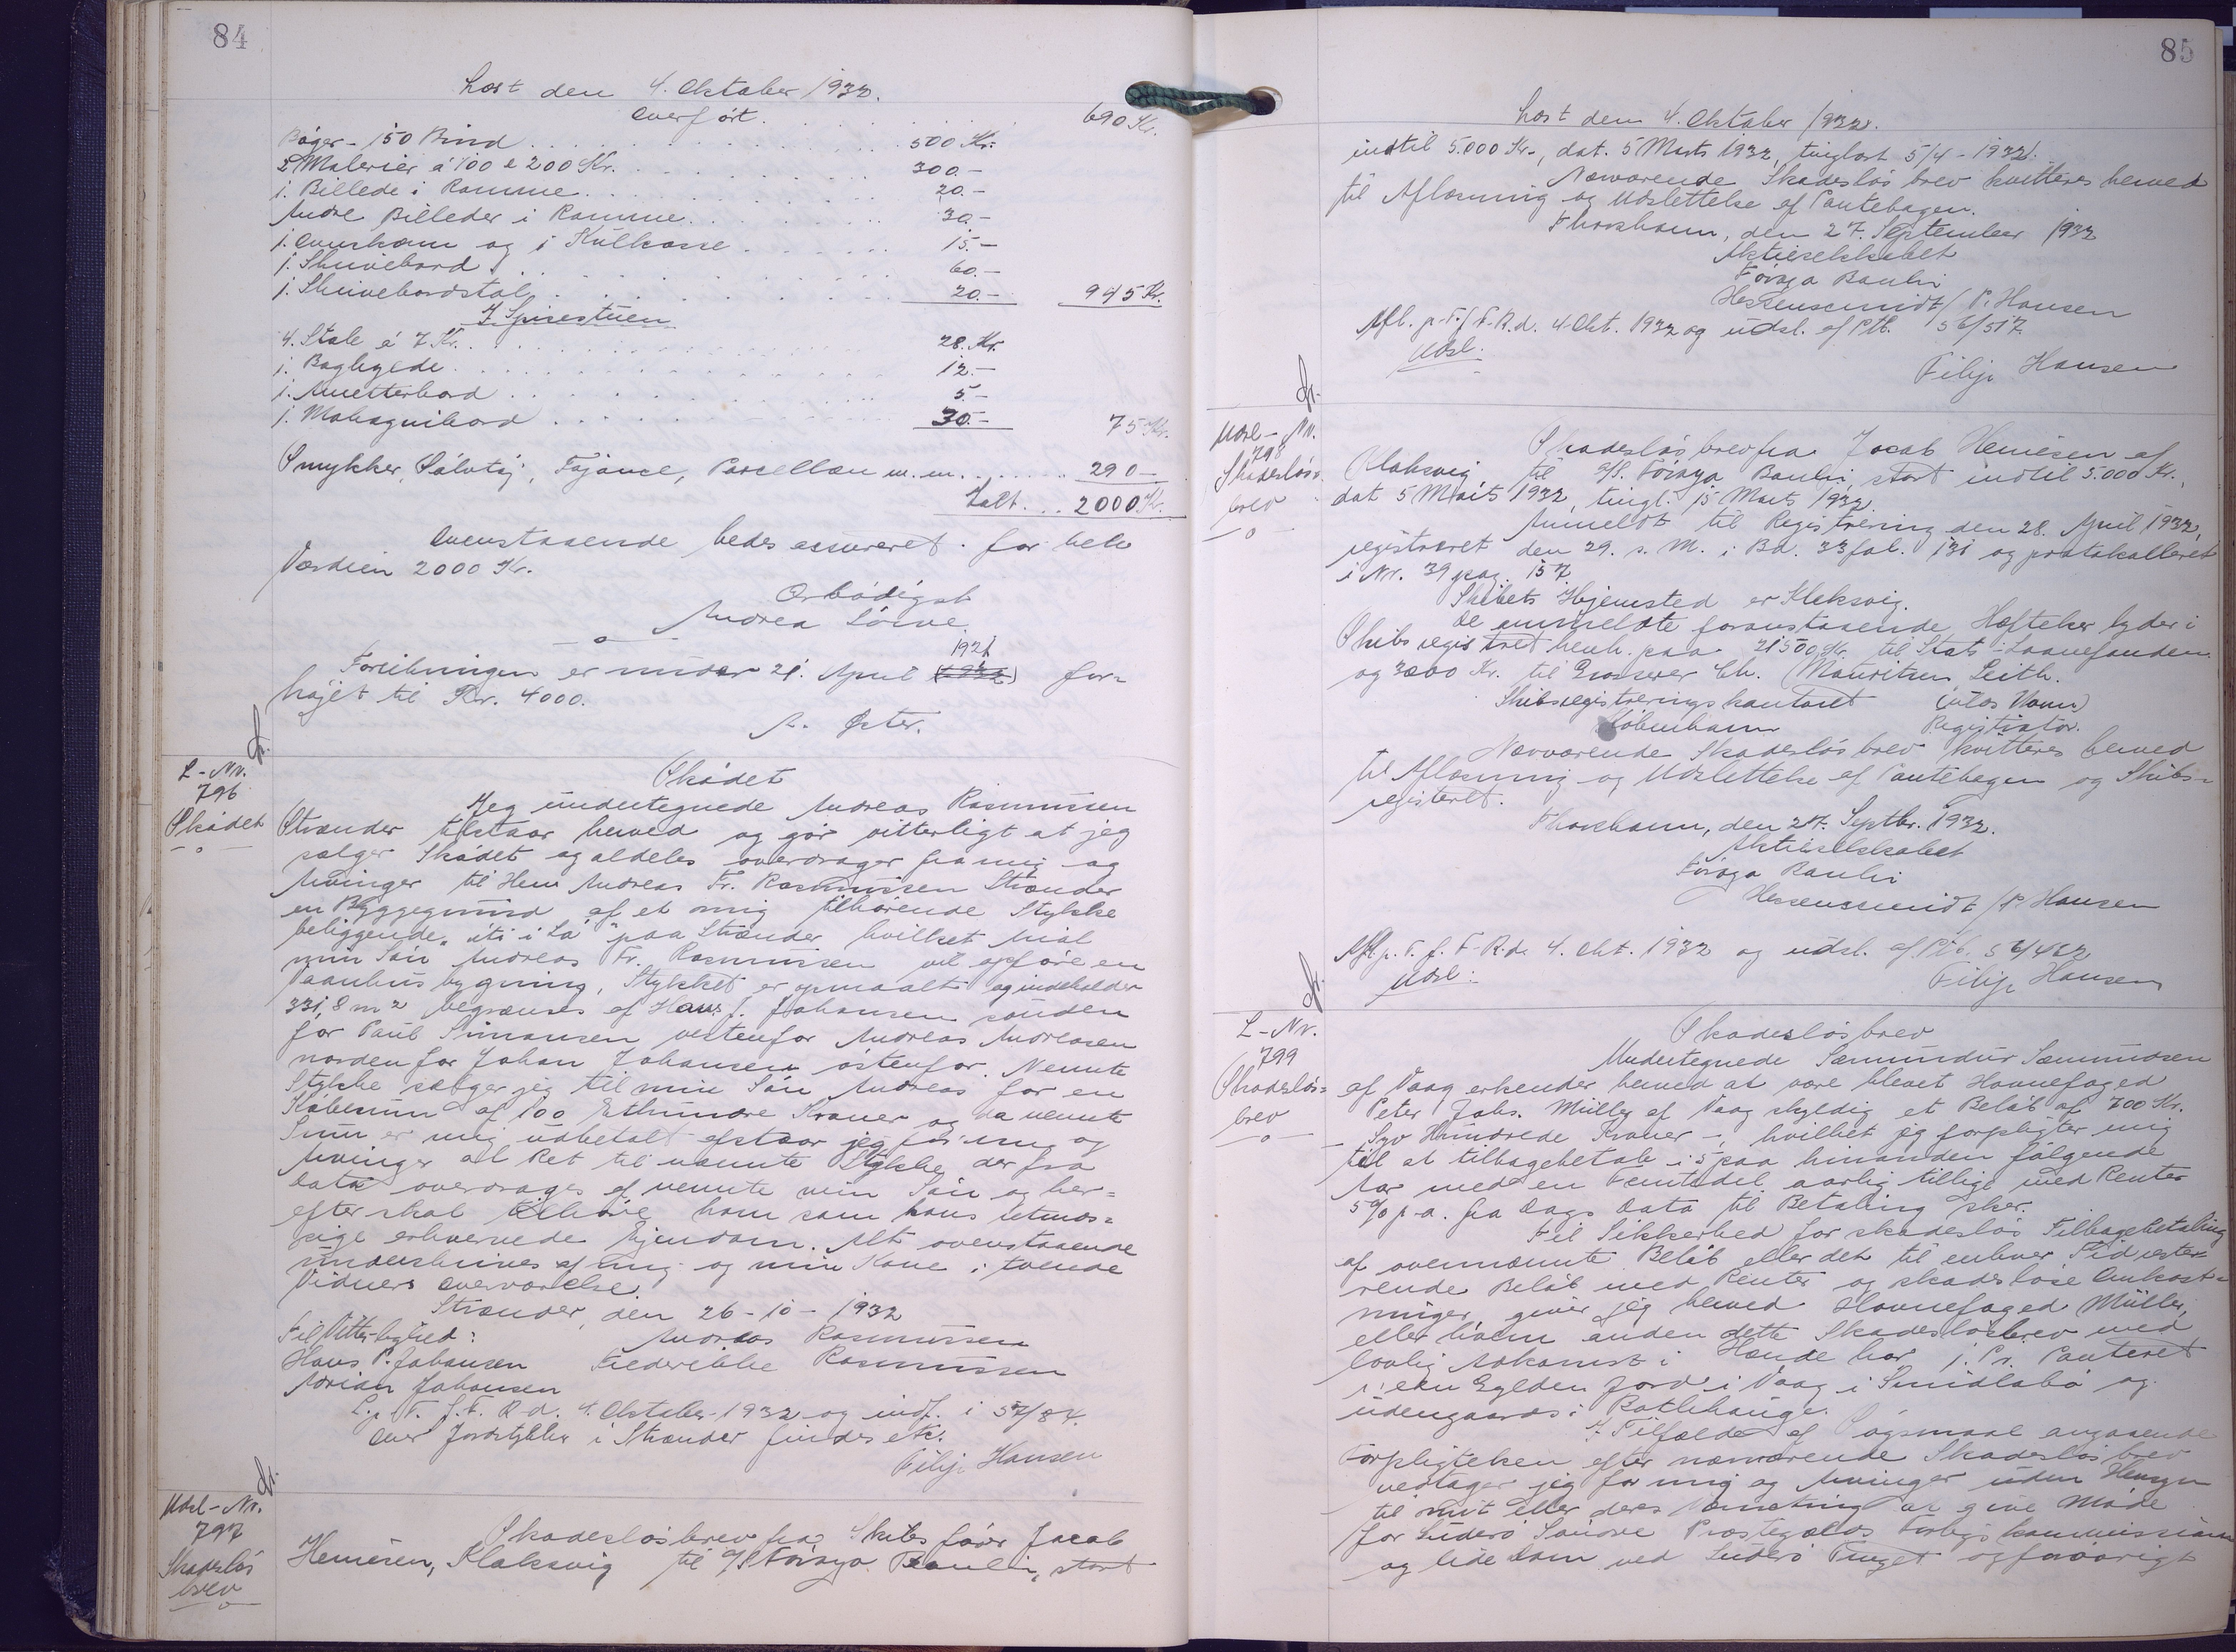 84
Læst den 4. Oktober 1932.
Overført . . . 690 Kr.
Bøger - 150 Bind . . . 500 Kr.
2 Malerier á 100 & 200 Kr. . . . 300.-
1. Billede i Ramme . . . 20.-
Andre Billeder i Ramme . . . 30.-
1. Ovnskærm og 1 Kulkasse . . . 15.-
1. Skrivebord . . . 60.-
1. Skrivebordstol . . . 20.- 945 Kr.
I Spisestuen
4. Stole á 7 Kr. . . . 28. Kr.
1. Boghylde . . . 12.-
1. Anretterbord . . . 5.-
1. Mahognibord . . . 30.- 75 Kr.
Smykker, Sølvtøj, Fajance, Porcellæn m. m. . . . 290-
Ialt . . . 2000 Kr.
Ovenstaaende bedes assureret for hele
Værdien 2000 Kr.
Ærbødigst
Andrea
—o—
1921
Forsikringen er under 21. April (1932) for-
højet til Kr. 4000.
A. Øster.
L-Nr.
796
Skødet
—o—
Skødet
Jeg undertegnede Andreas Rasmussen
Strænder tilstaar herved og gør vitterligt at jeg
sælger Skødet og aldeles overdrager fra mig og
Arvinger til Herr Andreas Fr. Rasmussen Strænder
en Byggegrund af et mig tilhørende Stykke
beliggende „úti í Lá" paa Strænder hvilket
min Søn Andreas Fr. Rasmussen vil opføre en
Vaanhus bygning, Stykket er opmaalt og indeholder
331,8 m² begrænses af Hans J. Johansen sønden
for Paul Simonsen vestenfor Andreas Andreasen
norden for Johan Johansen østenfor. Nemte
Stykke sælger jeg til min Søn Andreas for en
Købesum af 100 Ethundre Kroner og da nemte
Sum er mig udbetalt afstaar jeg fra mig og
Arvinger al Ret til nævnte Stykke der fra
Dato overdrages af nemte min Søn og her-
efter skal tilhøre ham som hans retmæs-
sige erhvervede Ejendom. Alt ovenstaaende
underskrives af mig og min Kone i tvende
Vidners overværelse.
Strænder, den 26-10-1932
Til Vitterlighed: Andreas Rasmussen
Hans P. Johansen Frederikke Rasmussen
Adrian Johansen
L. p. T. f. F. R d. 4. Oktober 1932 og indf. i 57/84.
Over Jordstykker i Strænder findes etc.
Filip Hansen
Udsl-Nr.
797
Skadesløs
brev
—o—
Skadesløsbrev fra Skibsfører Jacob
Heinesen, Klaksvig til A/S Föroya Banki, stort
85
Læst den 4. Oktober 1932.
indtil 5.000 Kr., dat. 5 Marts 1932, tinglæst 5/4-1932.
Nærværende Skadesløsbrev kvitteres herved
til Aflæsning og Udslettelse af Pantebogen.
Thorshavn, den 27. September 1932
Aktieselskabet
Föroya Banki
Hessenscmidt / P. Hansen
Afl. p. T. f. F. R. d. 4 Okt. 1932 og udsl. af Ptb. 56/517.
Udsl.
Filip Hansen
Udsl-Nr.
798
Skadesløs-
brev
—o—
Skadesløsbrev fra Jacob Heinesen af
Klaksvig til A/S. Föroya Banki, stort indtil 5.000 Kr.,
dat 5 Marts 1932, tingl. 15 Marts 1932.
Anmeldt til Registrering den 28. April 1932,
registreret den 29. s. M. i Bd. 33 fol. 131 og protokolleret
i Nr. 39 pag. 157.
Skibets Hjemsted er Kleksvig.
De anmeldte foranstaaende Hæftelser lyder i
Skibsregistret henh. paa 21500 Kr. til Stats-Laanefonden
og 3000 Kr. til Grosserer Chr. Mouritsen Leith.
Skibsregistreringskontoret
København Registrator.
Nærværende Skadesløsbrev kvitteres herved
til Aflæsning og Udslettelse af Pantebogen og Skibs-
registeret.
Thorshavn, den 27. Septbr. 1932.
Aktieselskabet
Föroya Banki
Hessenscmidt / P. Hansen
Afl. p. T. f. F. R. d. 4. Okt. 1932 og udsl. af Ptb. 56/462
Udsl:
Filip Hansen
L-Nr.
799
Skadesløs-
brev
—o—
Skadesløsbrev
Undertegnede Sæmundur Sæmundsen
af Vaag erkender herved at være blevet Havnefoged
Peter Johs. Müller af Vaag skyldig et Beløb af 700 Kr.
- Syv Hundrede Kroner -, hvilket jeg forpligter mig
til at tilbagebetale i 5 paa hinanden følgende
Aar med en Femtedel aarlig tillige med Renter
5% p. a. fra Dags Dato til Betaling sker.
Til Sikkerhed for skadesløs Tilbagebetaling
af ovennævnte Beløb eller det til enhver Tid reste-
rende Beløb med Renter og skadesløse Omkost-
ninger giver jeg herved Havnefoged Müller,
eller hvem anden dette Skadesløsbrev med
lovlig Adkomst i Hænde har 1. Pr. Panteret
i een Gylden Jord i Vaag i Smidlabø og
udengaards i
I Tilfælde af Søgsmaal angaaende
Forpligtelsen efter nærværende Skadesløsbrev
vedtager jeg for mig og Arvinger uden Hensyn
til mit eller deres Værneting at give Møde
for Suderø Søndre Præstegælds Forligskommission
og lide Dom ved Suderø Tinget og forøvrigt